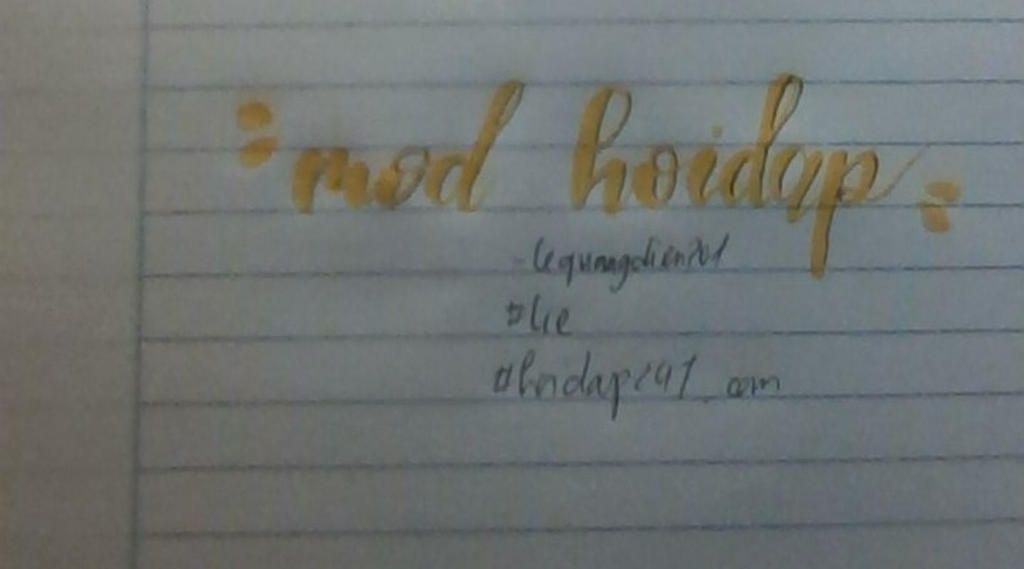 : mod hoidap :
- lequangdien201
#lie
#hoidap247.com